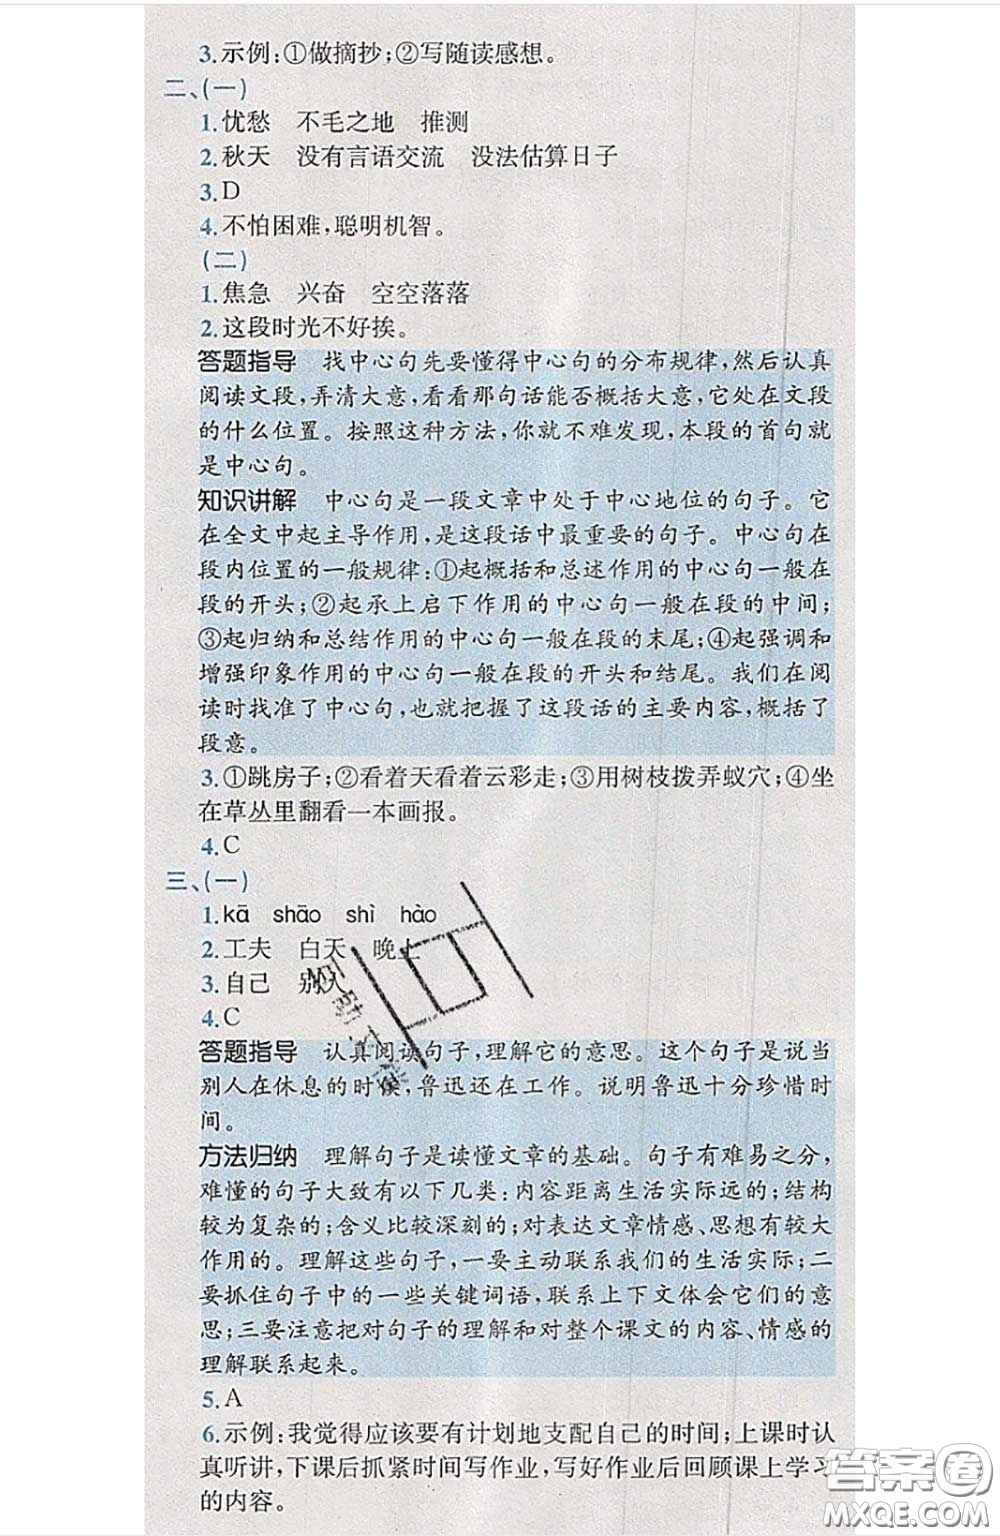 3.示例:①做摘抄;②写随读感想。
二、(一)
1.忧愁 不毛之地 推测
2.秋天 没有言语交流 没法估算日子
3.D
4.不怕困难,聪明机智。
(二)
1.焦急 兴奋 空空落落
2.这段时光不好挨。
答题指导 找中心句先要懂得中心句的分布规律,然后认真
阅读文段,弄清大意,看看那句话能否概括大意,它处在文段
的什么位置。按照这种方法,你就不难发现,本段的首句就
是中心句。
知识讲解 中心句是一段文章中处于中心地位的句子。它
在全文中起主导作用,是这段话中最重要的句子。中心句在
段内位置的一般规律:①起概括和总述作用的中心句一般在
段的开头;②起承上启下作用的中心句一般在段的中间;
③起归纳和总结作用的中心句一般在段的末尾;④起强调和
增强印象作用的中心句一般在段的开头和结尾。我们在阅
读时找准了中心句,也就把握了这段话的主要内容,概括了
段意。
3.①跳房子;②看着天看着云彩走;③用树枝拨弄蚁穴;④坐
在草丛里翻看一本画报。
4.C
三、(一)
1.kā shāo shì hào
2.工夫 白天 晚上
3.自己 别人
4.C
答题指导 认真阅读句子,理解它的意思。这个句子是说当
别人在休息的时候,鲁迅还在工作。说明鲁迅十分珍惜时
间。
方法归纳 理解句子是读懂文章的基础。句子有难易之分,
难懂的句子大致有以下几类:内容距离生活实际远的;结构
较为复杂的;含义比较深刻的;对表达文章情感、思想有较大
作用的。理解这些句子,一要主动联系我们的生活实际;二
要抓住句子中的一些关键词语,联系上下文体会它们的意
思;三要注意把对句子的理解和对整个课文的内容、情感的
理解联系起来。
5.A
6.示例:我觉得应该要有计划地支配自己的时间;上课时认
真听讲,下课后抓紧时间写作业,写好作业后回顾课上学习
的内容。
答案圈
MXQE.COM